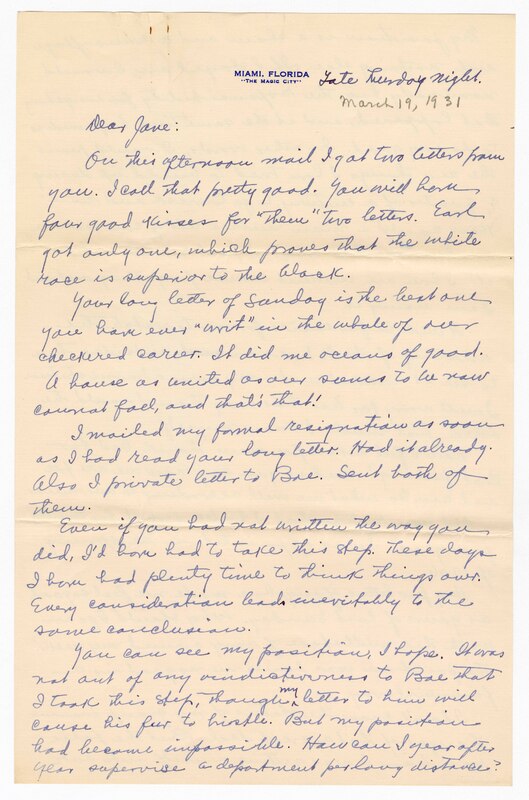 MIAMI, FLORIDA
"THE MAGIC CITY"
Late Tursday night.
March 19, 1931
Dear Jane:
On this afternoon mail I got two letters from
you. I call that pretty good. You will have
four good kisses for "them" two letters. Earl
got only one, which proves that the white
race is superior to the black.
Your long letter of Sunday is the best one
you have ever "writ" in the whole of our
checkered career. It did me oceans of good.
A house as united as our seems to be now
cannot fall, and that's that!
I mailed my formal resignation as soon
as I had read your long letter. Had it already.
Also I private letter to Boe. Sent both of
them.
Even if you had not written the way you
did, I'd have had to take this step. These days
I have had plenty time to think things over.
Every consideration leads inevitably to the
same conclusion.
You can see my position, I hope. It was
not out of any vindictiveness to Boe that
I took this step, though my letter to him will
cause his fur to bristle. But my position
had become impossible. How can I year after
year supervise a department per long distance?